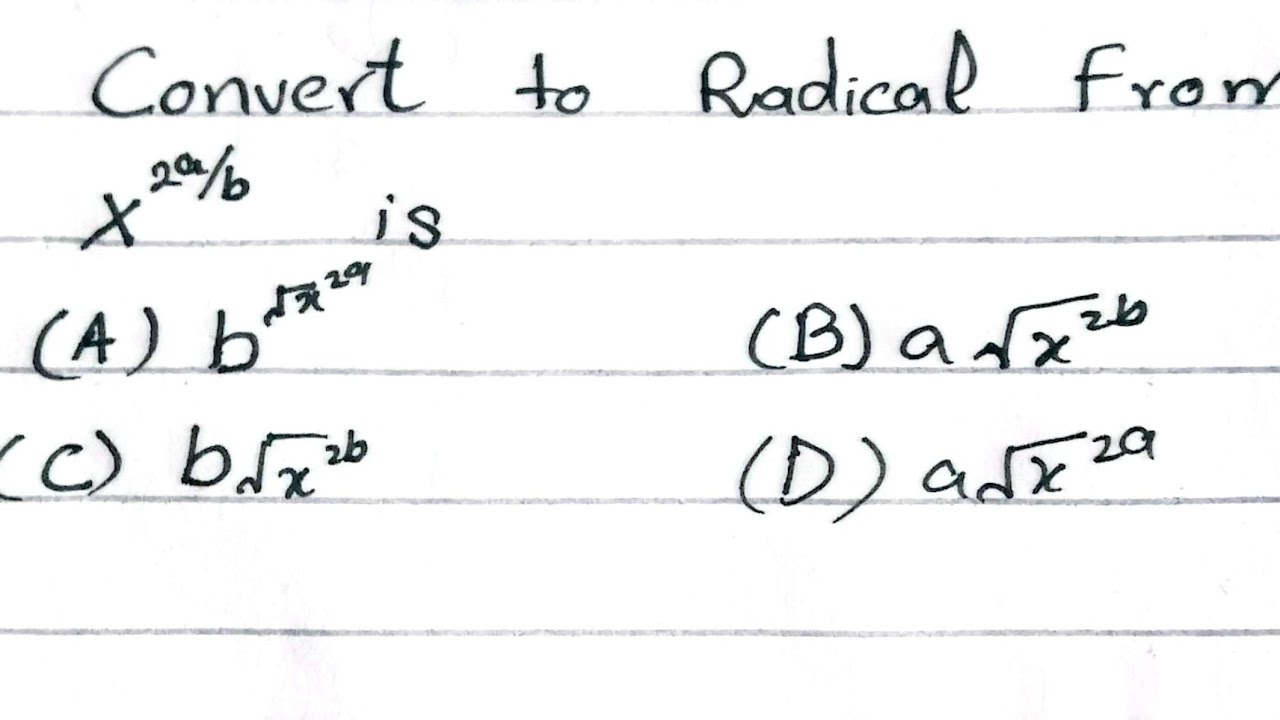 Convert to Radical from
x^{2a/b} is
(A) b^{√x^{2a}} (B) a√x^{2b}
(C) b√x^{2b} (D) a√x^{2a}